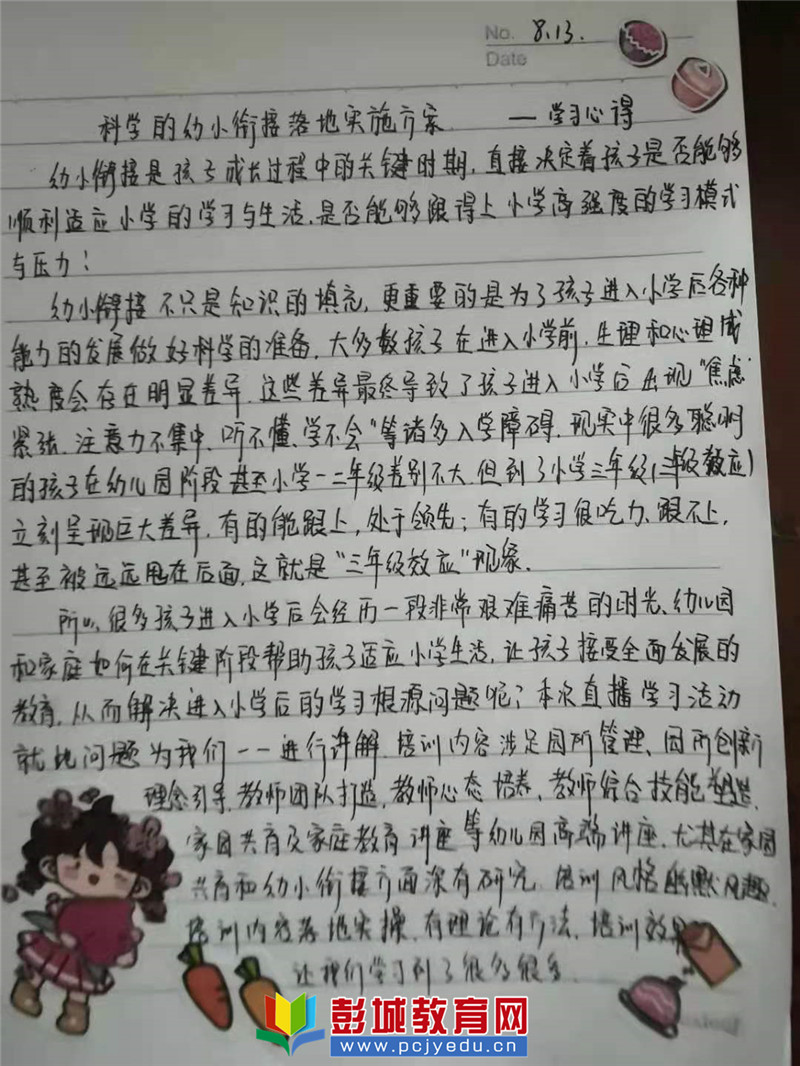 No. 8.13.
Date
科学的幼小衔接落地实施方案 —学习心得
幼小衔接是孩子成长过程中的关键时期,直接决定着孩子是否能够
顺利适应小学的学习与生活,是否能够跟得上小学高强度的学习模式
与压力!
幼小衔接不只是知识的填充,更重要的是为了孩子进入小学后各种
能力的发展做好科学的准备.大多数孩子在进入小学前,生理和心理成
熟度会存在明显差异.这些差异最终导致了孩子进入小学后出现"焦虑
紧张.注意力不集中、听不懂、学不会"等诸多入学障碍.现实中很多聪明
的孩子在幼儿园阶段甚至小学一二年级差别不大.但到了小学三年级(三年级效应)
立刻呈现巨大差异.有的能跟上,处于领先;有的学习很吃力、跟不上,
甚至被远远甩在后面.这就是"三年级效应"现象.
所以,很多孩子进入小学后会经历一段非常艰难痛苦的时光、幼儿园
和家庭如何在关键阶段帮助孩子适应小学生活,让孩子接受全面发展的
教育,从而解决进入小学后的学习根源问题呢?本次直播学习活动
就此问题为我们一一进行讲解.培训内容涉足园所管理、园所创新
理念引导、教师团队打造,教师心态培养、教师综合技能塑造.
家园共育及家庭教育讲座等幼儿园高端讲座.尤其在家园
共育和幼小衔接方面深有研究.培训风格幽默风趣.
培训内容落地实操.有理论有方法.培训效果
让我们学习到了很多很多.
彭城教育网
www.pcjyedu.cn